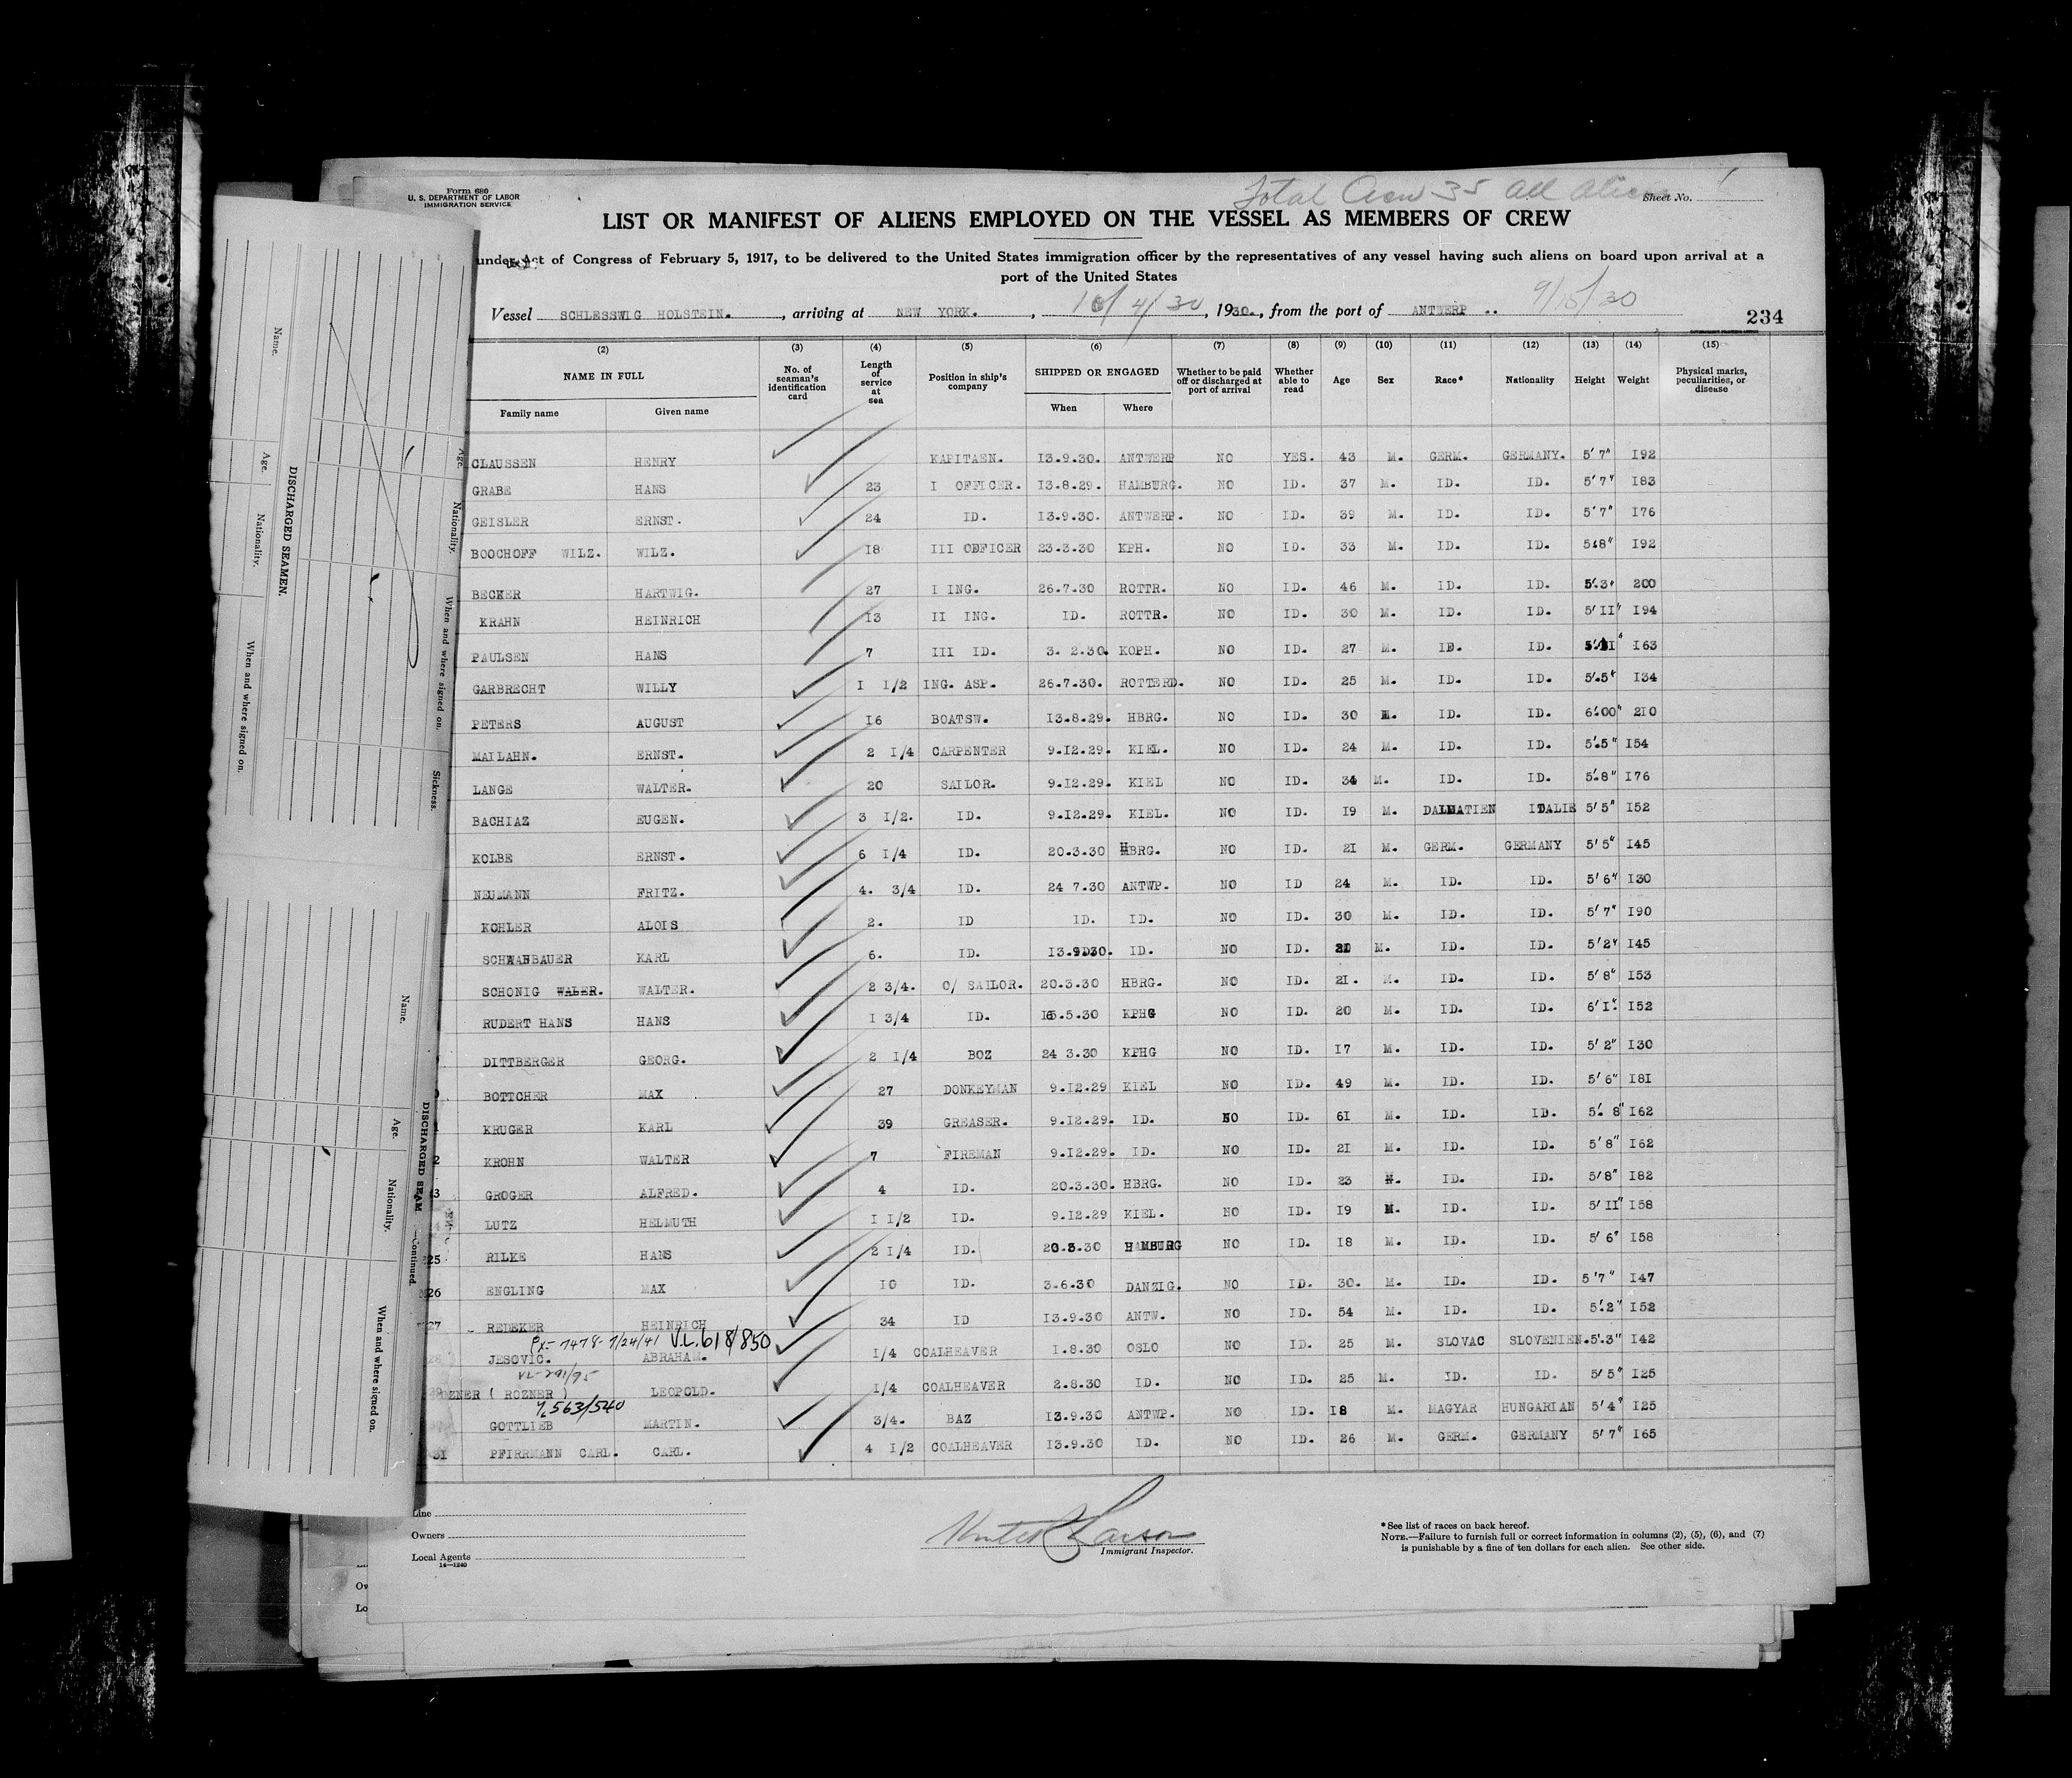 Form 680
U. S. DEPARTMENT OF LABOR
IMMIGRATION SERVICE
Total Crew 35 all aliens
Sheet No.
LIST OR MANIFEST OF ALIENS EMPLOYED ON THE VESSEL AS MEMBERS OF CREW
under Act of Congress of February 5, 1917, to be delivered to the United States immigration officer by the representatives of any vessel having such aliens on board upon arrival at a
port of the United States
Vessel SCHLESSWIG HOLSTEIN. , arriving at NEW YORK. , 10/4/30 , 1930. , from the port of ANTWERP .. 9/15/30
234
(2) (3) (4) (5) (6) (7) (8) (9) (10) (11) (12) (13) (14) (15)
NAME IN FULL No. of seaman's identification card Length of service at sea Position in ship's company SHIPPED OR ENGAGED Whether to be paid off or discharged at port of arrival Whether able to read Age Sex Race* Nationality Height Weight Physical marks, peculiarities, or disease
Family name Given name When Where
CLAUSSEN HENRY KAPITAEN. 13.9.30. ANTWERP NO YES. 43 M. GERM. GERMANY. 5' 7" I92
GRABE HANS 23 I OFFICER. I3.8.29. HAMBURG. NO ID. 37 M. ID. ID. 5' 7" I83
GEISLER ERNST. 24 ID. I3.9.30. ANTWERP. NO ID. 39 M. ID. ID. 5' 7" I76
BOOCHOFF WILZ. WILZ. I8 III OFFICER 23.3.30 KPH. NO ID. 33 M. ID. ID. 5'8" I92
BECKER HARTWIG. 27 I ING. 26.7.30 ROTTR. NO ID. 46 M. ID. ID. 5'.3" 200
KRAHN HEINRICH I3 II ING. ID. ROTTR. NO ID. 30 M. ID. ID. 5' II" I94
PAULSEN HANS 7 III ID. 3. 2.30. KOPH. NO ID. 27 M. ID. ID. I63
GARBRECHT WILLY I I/2 ING. ASP. 26.7.30. ROTTERD. NO ID. 25 M. ID. ID. 5'.5" I34
PETERS AUGUST I6 BOATSW. I3.8.29. HBRG. NO ID. 30 M. ID. ID. 6'.00" 2I0
MAILAHN. ERNST. 2 I/4 CARPENTER 9.I2.29. KIEL. NO ID. 24 M. ID. ID. 5'.5" I54
LANGE WALTER. 20 SAILOR. 9.I2.29. KIEL NO ID. 34 M. ID. ID. 5'.8" I76
BACHIAZ EUGEN. 3 I/2. ID. 9.I2.29. KIEL. NO ID. I9 M. DALMATIEN ITALIE 5' 5" I52
KOLBE ERNST. 6 I/4 ID. 20.3.30 HBRG. NO ID. 2I M. GERM. GERMANY 5' 5" I45
NEUMANN FRITZ. 4. 3/4 ID. 24 7.30 ANTWP. NO ID 24 M. ID. ID. 5' 6" I30
KOHLER ALOIS 2. ID ID. ID. NO ID. 30 M. ID. ID. 5' 7" I90
SCHWANBAUER KARL 6. ID. I3.9.30. ID. NO ID. M. ID. ID. 5' 2" I45
SCHONIG WALER. WALTER. 2 3/4. O/ SAILOR. 20.3.30 HBRG. NO ID. 2I. M. ID. ID. 5' 8" I53
RUDERT HANS HANS I 3/4 ID. I6.5.30 KPHG NO ID. 20 M. ID. ID. 6' I" I52
DITTBERGER GEORG. 2 I/4 BOZ 24 3.30 KPHG NO ID. I7 M. ID. ID. 5' 2" I30
BOTTCHER MAX 27 DONKEYMAN 9.I2.29 KIEL NO ID. 49 M. ID. ID. 5' 6" I8I
KRUGER KARL 39 GREASER. 9.I2.29. ID. NO ID. 6I M. ID. ID. 5'. 8" I62
KROHN WALTER 7 FIREMAN 9.I2.29. ID. NO ID. 2I M. ID. ID. 5' 8" I62
GROGER ALFRED. 4 ID. 20.3.30. HBRG. NO ID. 23 M. ID. ID. 5'8" I82
LUTZ HELMUTH I I/2 ID. 9.I2.29 KIEL. NO ID. I9 M. ID. ID. 5' II" I58
25 RILKE HANS 2 I/4 ID. 20.3.30 HAMBURG NO ID. I8 M. ID. ID. 5' 6" I58
26 ENGLING MAX I0 ID. 3.6.30 DANZIG. NO ID. 30. M. ID. ID. 5'7" I47
27 REDEKER HEINRICH 34 ID I3.9.30 ANTW. NO ID. 54 M. ID. ID. 5'.2" I52
7478- 7/24/41 V.L. 618/850
JESOVIC. ABRAHAM. I/4 COALHEAVER I.8.30 OSLO NO ID. 25 M. SLOVAC SLOVENIEN. 5'.3" I42
VL-291/95
OZNER ( ROZNER ) LEOPOLD. I/4 COALHEAVER 2.8.30 ID. NO ID. 25 M. ID. ID. 5' 5" I25
563/540
GOTTLIEB MARTIN. 3/4. BAZ I3.9.30 ANTWP. NO ID. I8 M. MAGYAR HUNGARIAN 5' 4" I25
31 PFIRRMANN CARL. CARL. 4 I/2 COALHEAVER I3.9.30 ID. NO ID. 26 M. GERM. GERMANY 5' 7" I65
Line
Owners
Local Agents
14—1240
Immigrant Inspector.
*See list of races on back hereof.
NOTE.—Failure to furnish full or correct information in columns (2), (5), (6), and (7)
is punishable by a fine of ten dollars for each alien. See other side.
DISCHARGED SEAMEN.
Name. Age. Nationality. When and where signed on.
Age. Nationality. When and where signed on. Sickness.
DISCHARGED SEAM —Continued.
Name. Age. Nationality. When and where signed on.